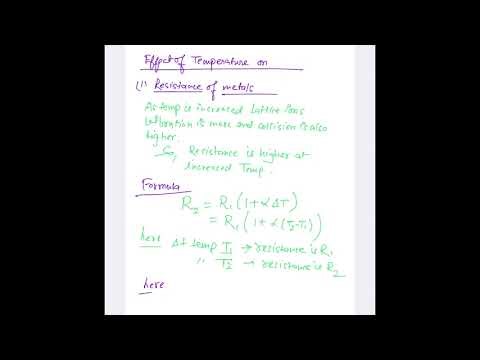 Effect of Temperature on
(1) Resistance of metals
As temp is increased Lattice Ions
vibration is more and collision is also
higher.
So, Resistance is higher at
increased Temp.
Formula
R₂ = R₁ (1 + α ΔT)
= R₁ (1 + α (T₂-T₁))
here At temp T₁ → resistance is R₁
" T₂ → resistance is R₂
here